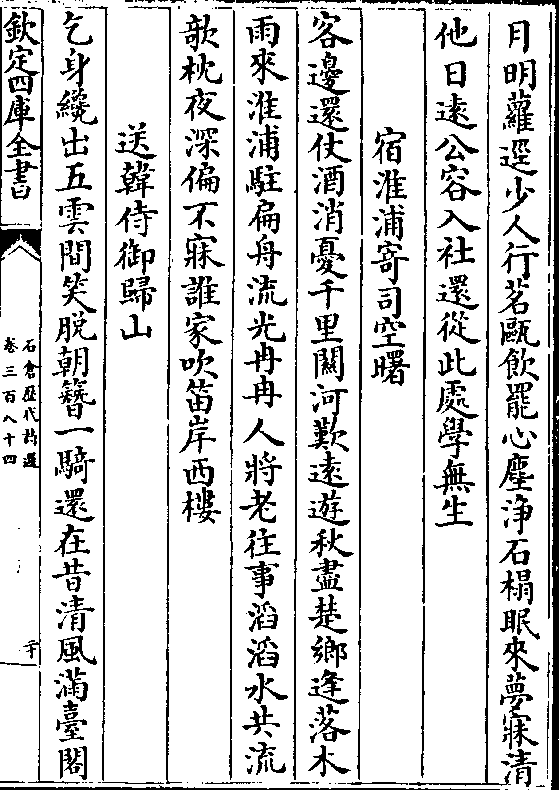 月明蘿逕少人行茗甌飲罷心塵浄石榻眠來夢寐清
他日逺公容入社還從此處學無生
宿淮浦寄司空曙
客邊還仗酒消憂千里關河歎逺遊秋盡楚鄉逢落木
雨來淮浦駐扁舟流光冉冉人將老往事滔滔水共流
欹枕夜深偏不寐誰家吹笛岸西樓
送韓侍御歸山
乞身纔出五雲間笑脱朝簪一騎還在昔清風滿臺閣
欽定四庫全書
石倉歴代詩選
卷三百八十四
二十